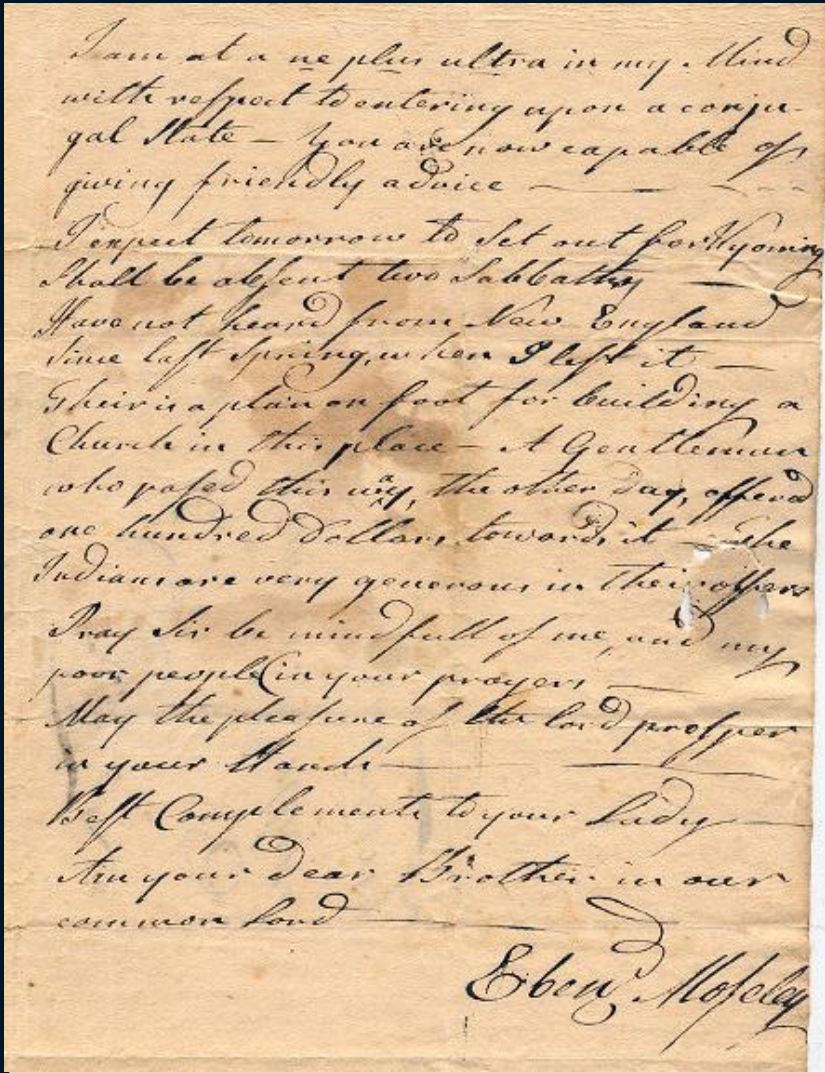 I am at a ne plus ultra in my Mind
with respect to entering upon a conju-
gal State — You are now capable of
giving friendly advice — — - - -
I expect tomorrow to Set out for Wyoming
Shall be absent two Sabbaths —
Have not heard from New England
Since last Spring, when I left it —
Their is a plan on foot for building a
Church in this place — A Gentleman
who passed this way, the other Day, offered
one hundred Dollars towards it — The
Indians are very generous in their offers
Pray Sir be mindfull of me, and my
poor people in your prayers —
May the pleasure of the Lord prosper
in your Hands — —
Best Complements to your Lady —
Am your Dear Brother in our
common Lord —
Eben,, Moseley